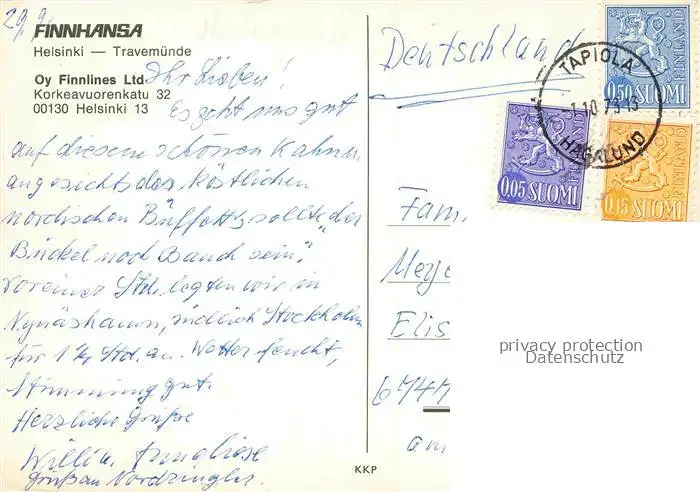 29.9.
FINNHANSA
Helsinki — Travemünde
Oy Finnlines Ltd
Korkeavuorenkatu 32
00130 Helsinki 13
Ihr Lieben!
Es geht uns gut
auf diesem schönen Kahn u.
angesichts des köstlichen
nordischen Büffetts sollte "der
Buckel noch Bauch sein".
Vor einer Std. legten wir in
Nynäshamn, südlich Stockholm
für 1 ½ Std. an. Wetter feucht,
Stimmung gut.
Herzliche Grüße
Willi u. Anneliese
Gruß an Nordringler.
KKP
Deutschland
TAPIOLA
1.10.73-13
HAGALUND
0,50 SUOMI
FINLAND
0,05 SUOMI
FINLAND
0,15 SUOMI
FINLAND
Fam.
Meye
Elis
6747
am
privacy protection
Datenschutz